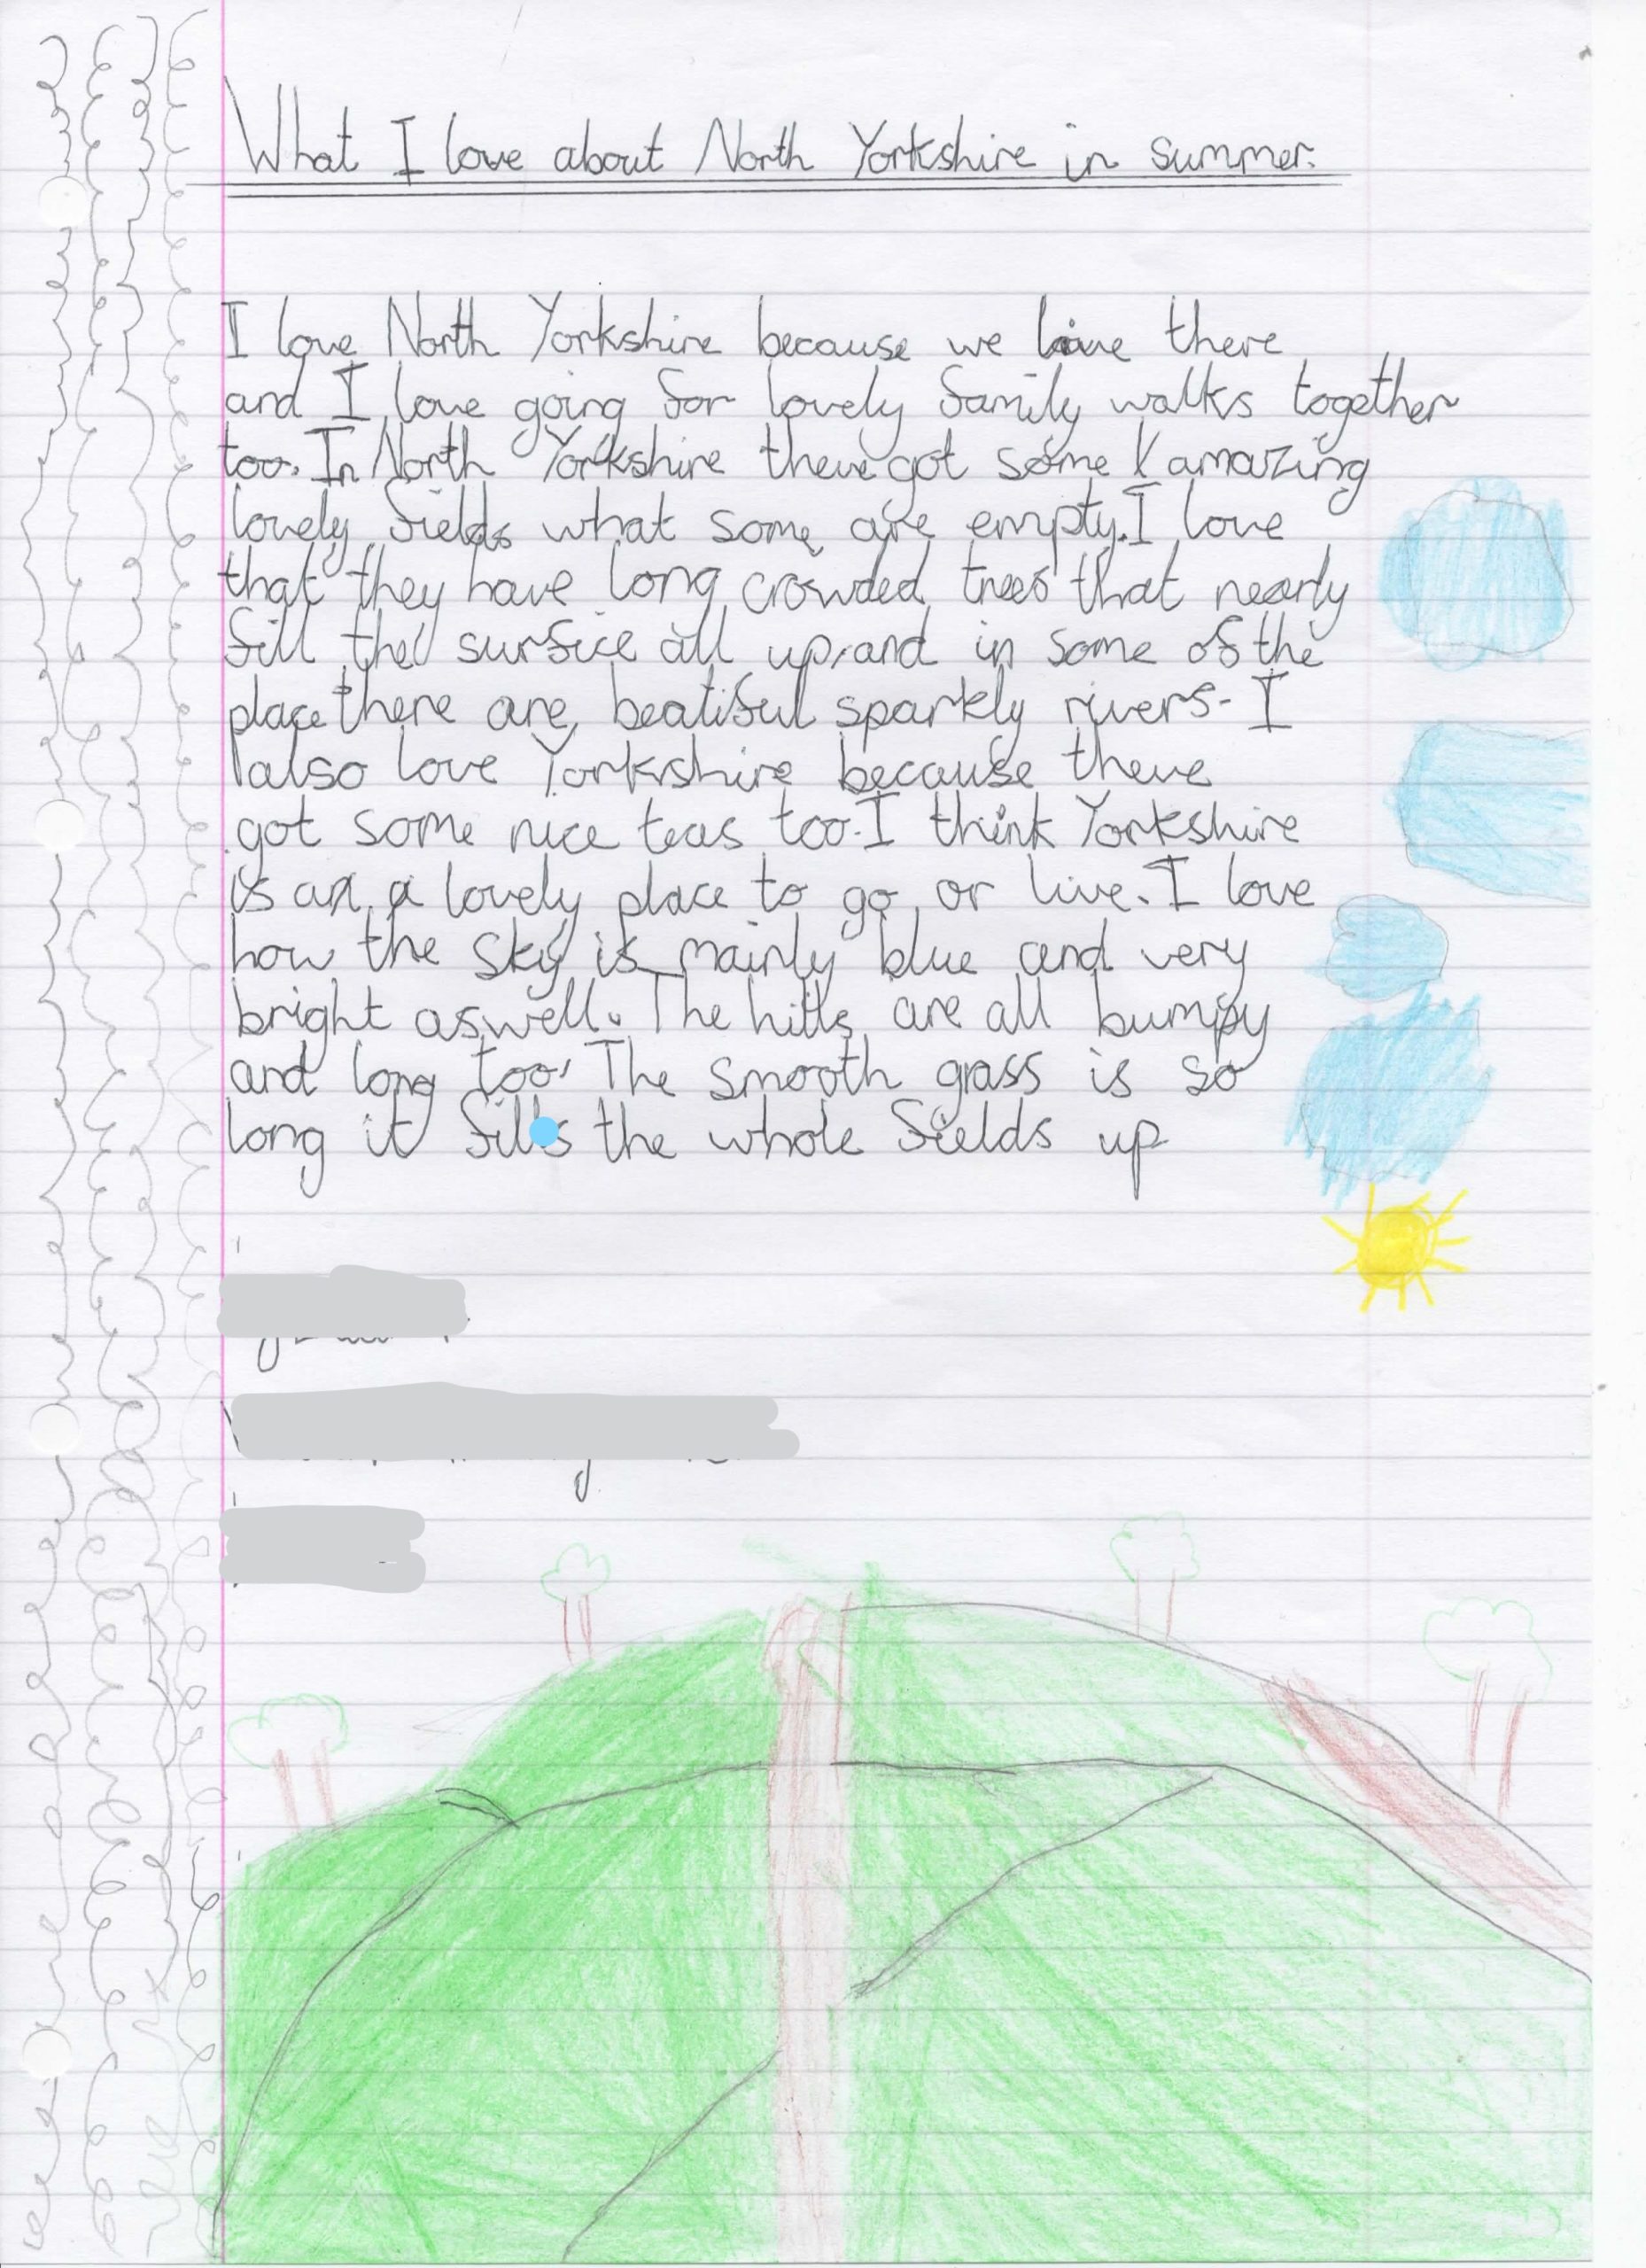 What I love about North Yorkshire in summer.
I love North Yorkshire because we live there
and I love going for lovely family walks together
too. In North Yorkshire theve got some amazing
lovely fields what some are empty. I love
that they have long crowded trees that nearly
fill the surfice all up, and in some of the
place there are beatiful sparkly rivers. I
also love Yorkshire because theve
got some nice teas too. I think Yorkshire
is an a lovely place to go or live. I love
how the sky is mainly blue and very
bright aswell. The hills are all bumpy
and long too. The smooth grass is so
long it fills the whole fields up